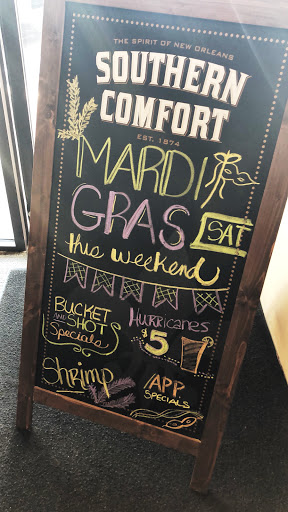 THE SPIRIT OF NEW ORLEANS
SOUTHERN
COMFORT
EST. 1874
MARDI
GRAS
SAT
this weekend
BUCKET
AND SHOT
Specials
HURRICANES
$5
Shrimp
APP
SPECIALS